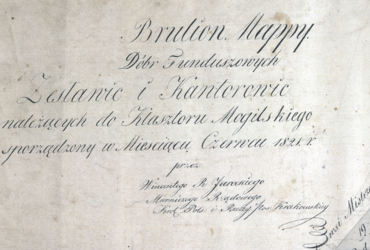 Brulion Mappy
Dóbr Funduszowych
Zesławic i Kantorowic
należących do Klasztoru Mogilskiego
sporządzony w Miesiącu Czerwcu 1821 r.
przez
Wincentego R.
Mierniczego Rządowego
Król. Pols.